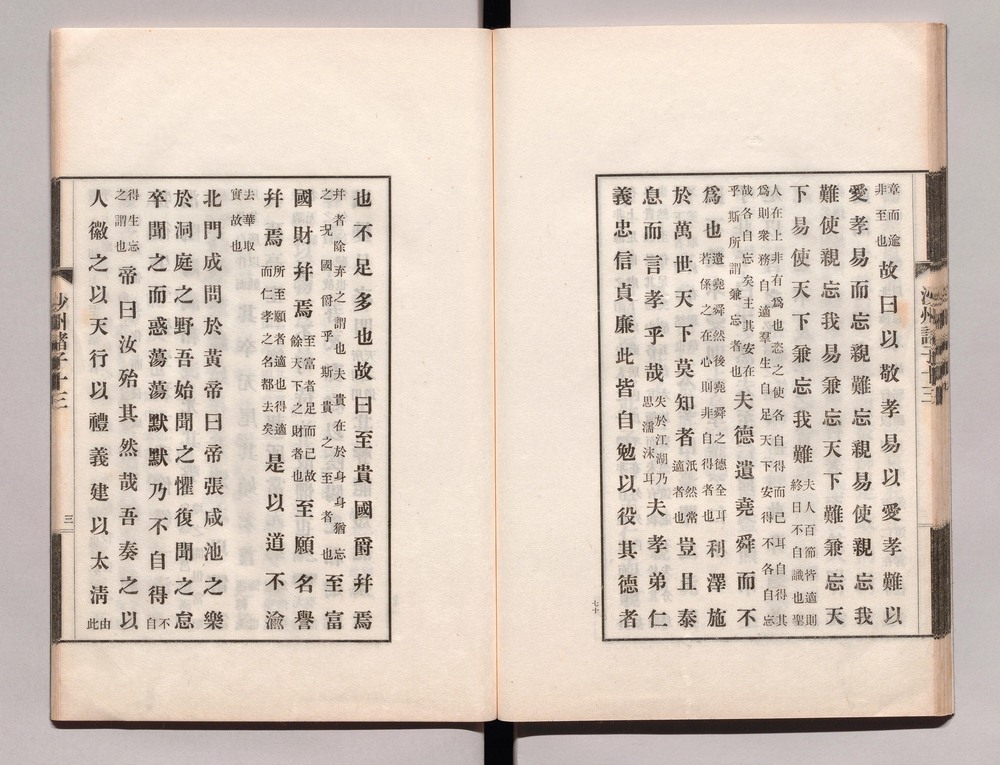 章而逾非至也故曰以敬孝易以愛孝難以
愛孝易而忘親難忘親易使親忘我
難使親忘我易兼忘天下難兼忘天
下易使天下兼忘我難夫人百節皆適則終日不自識也聖
人在上非有爲也恣之使各自得而已耳自得其爲則衆務自適羣生自足天下安得不各自忘
哉各自忘矣主其安在乎斯所謂兼忘者也夫德遺堯舜而不
爲也遺堯舜然後堯舜之德全耳若係之在心則非自得者也利澤施
於萬世天下莫知者泯然常適者也豈且泰
息而言孝乎哉失於江湖乃思濡沫耳夫孝弟仁
義忠信貞廉此皆自勉以役其德者
七十
沙州諸子十三
也不足多也故曰至貴國爵幷焉
幷者除弃之謂也夫貴在於身身猶忘之況國爵乎斯貴之至者也至富
國財幷焉至富者足而已故餘天下之財者也至願名譽
幷焉所至願者適也得適而仁孝之名都去矣是以道不渝
去華取實故也
北門成問於黃帝曰帝張咸池之樂
於洞庭之野吾始聞之懼復聞之怠
卒聞之而惑蕩蕩默默乃不自得不自
得生忘之謂也帝曰汝殆其然哉吾奏之以
人徽之以天行以禮義建以太淸由此
沙州諸子十三
三